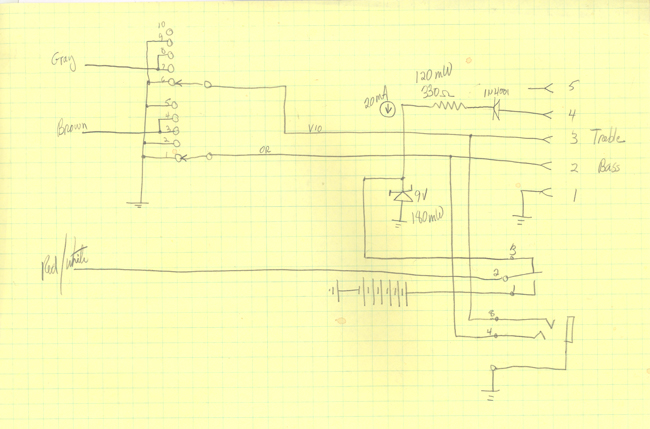 10
9
8
7
6
5
4
3
2
1
Gray
Brown
Red/white
VIO
OR
20mA
120mW
330Ω
1N4001
5
4
3 Treble
2 Bass
1
9V
180mW
3
2
1
8
4